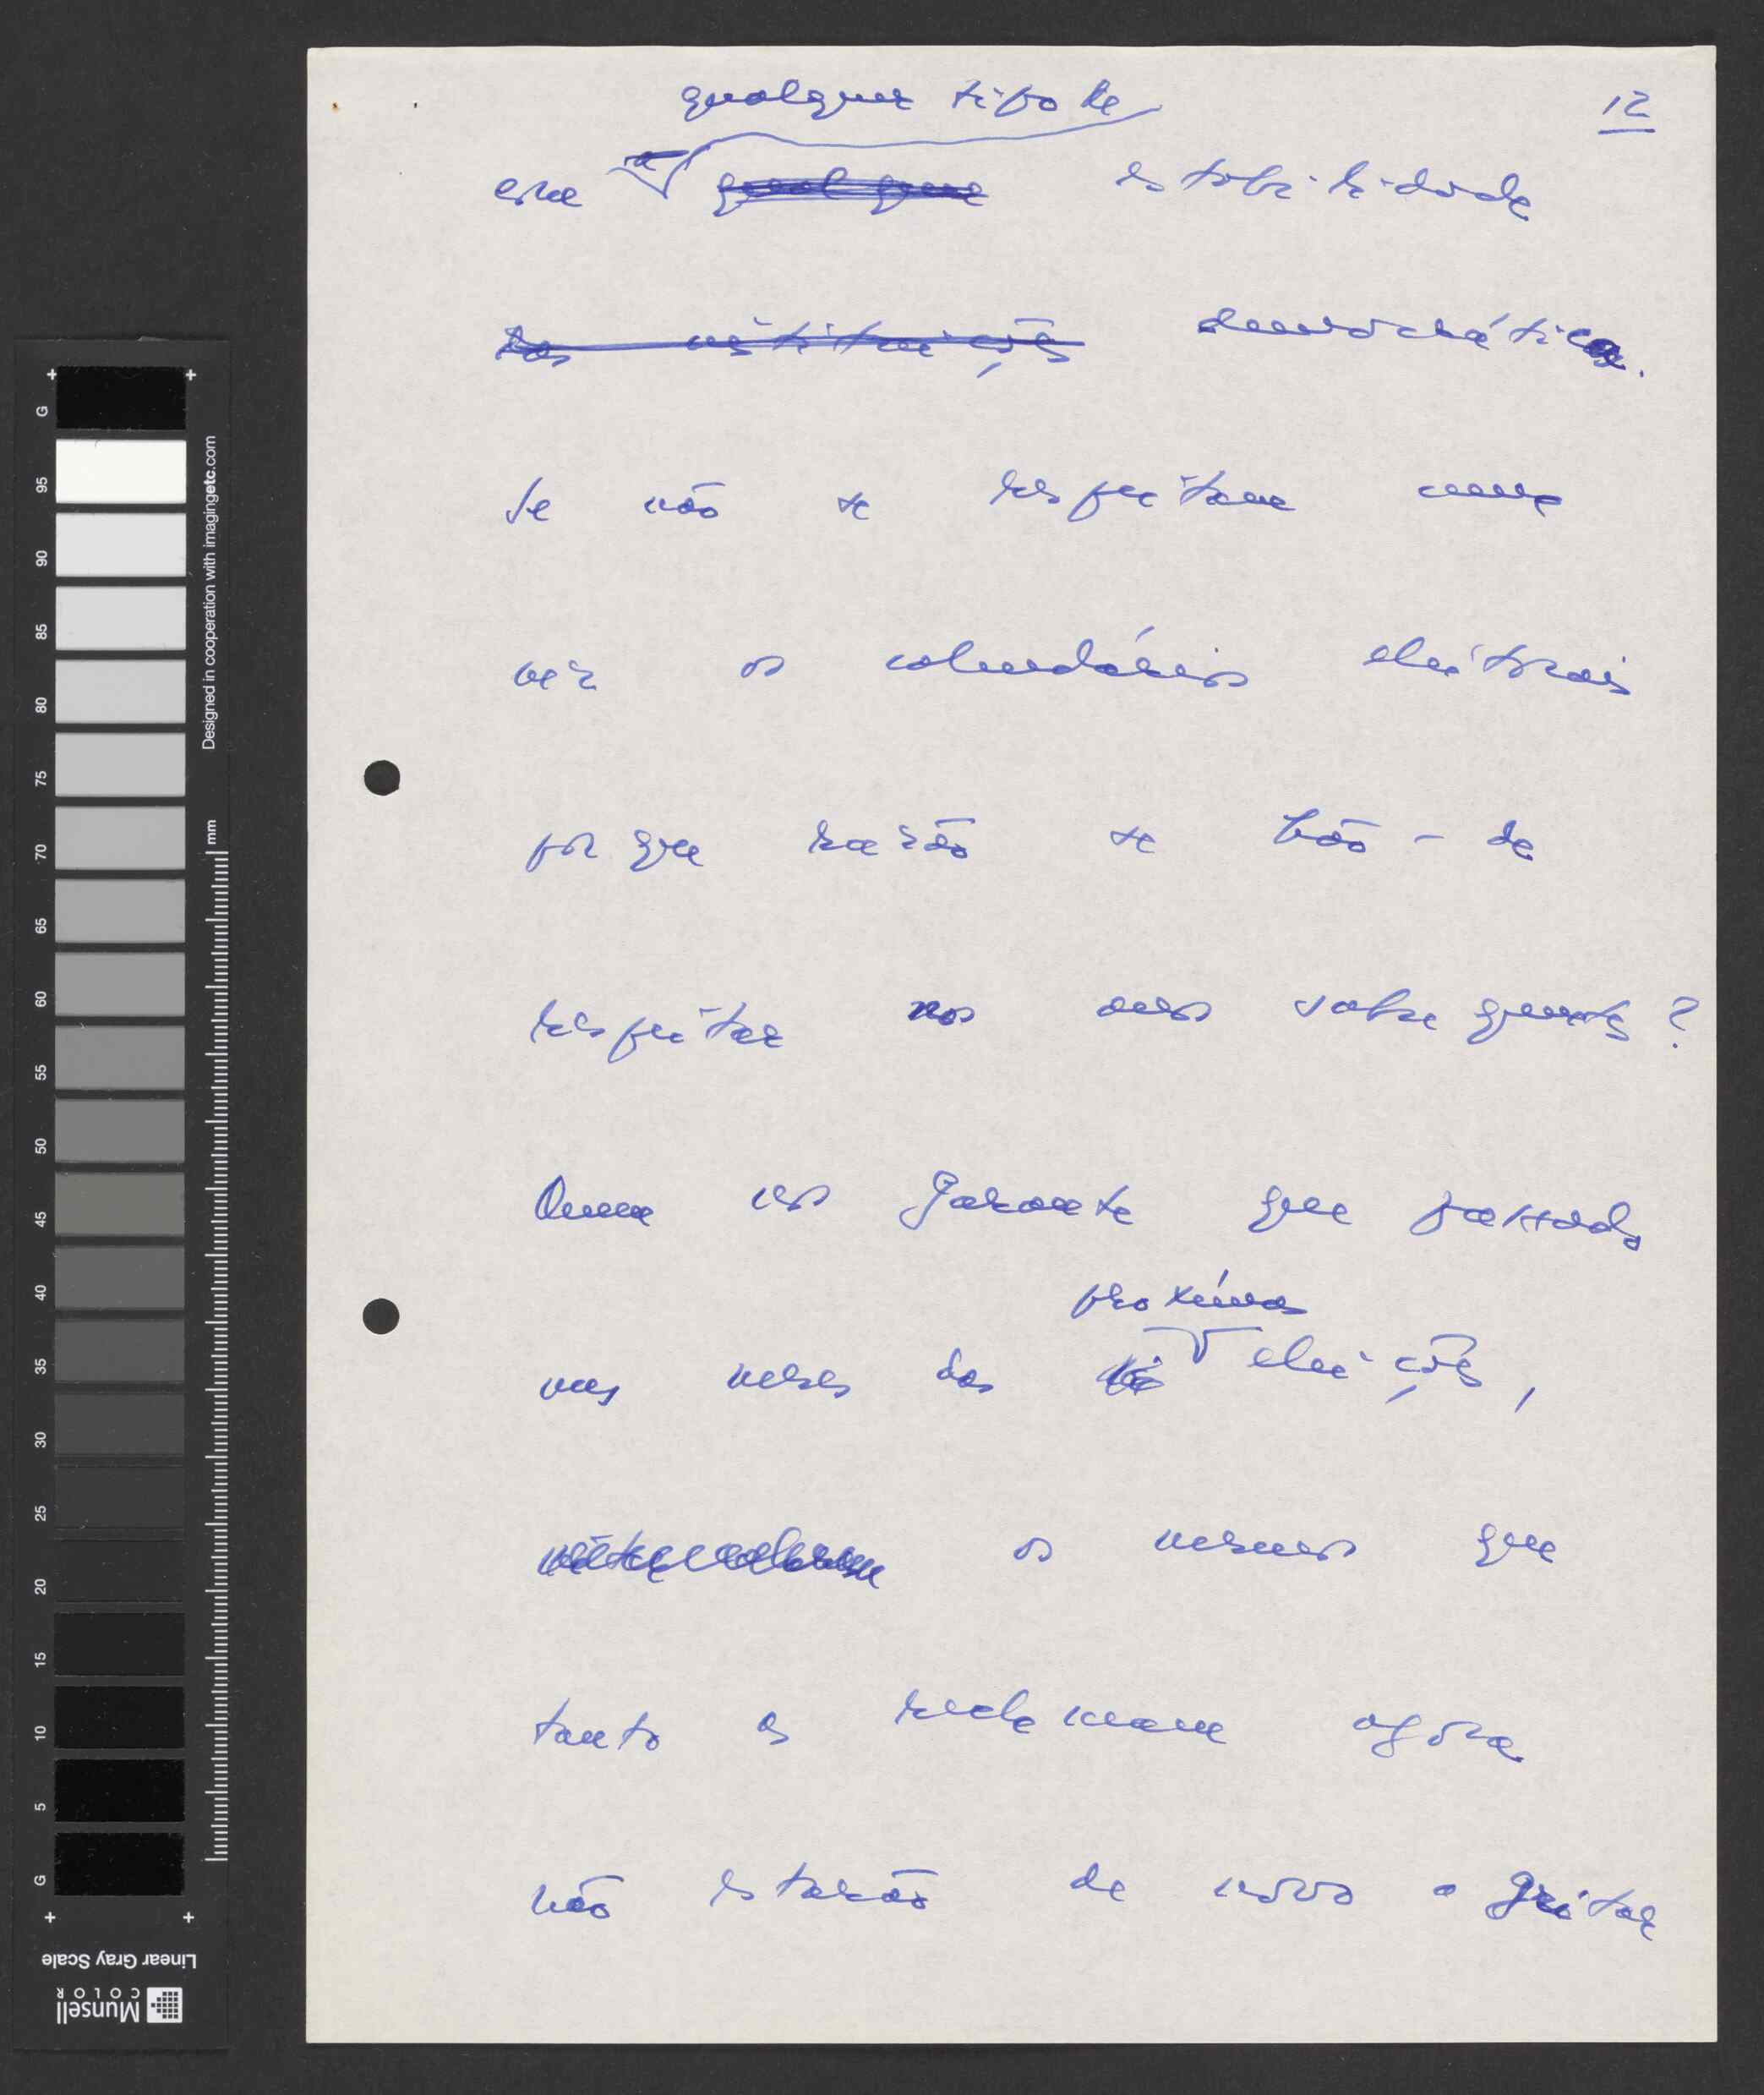 qualquer tipo de
12
em a qualquer estabilidade
das instituições democrática.
Se não se respeitam uma
vez os calendários eleitorais
por que razão se hão-de
respeitar nos anos subsequentes?
Quem nos garante que passados
uns meses das próximas eleições,
os mesmos que
tanto as reclamam agora
não estarão de novo a gritar
G
95
90
85
80
75
70
65
60
55
50
45
40
35
30
25
20
15
10
5
G
mm
Designed in cooperation with imagingetc.com
Linear Gray Scale
Munsell
COLOR